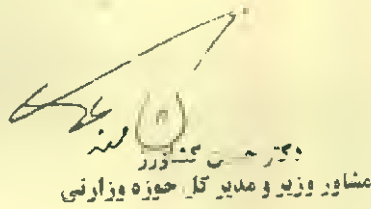 دکتر حسن کشاورز
مشاور وزیر و مدیر کل حوزه وزارتی